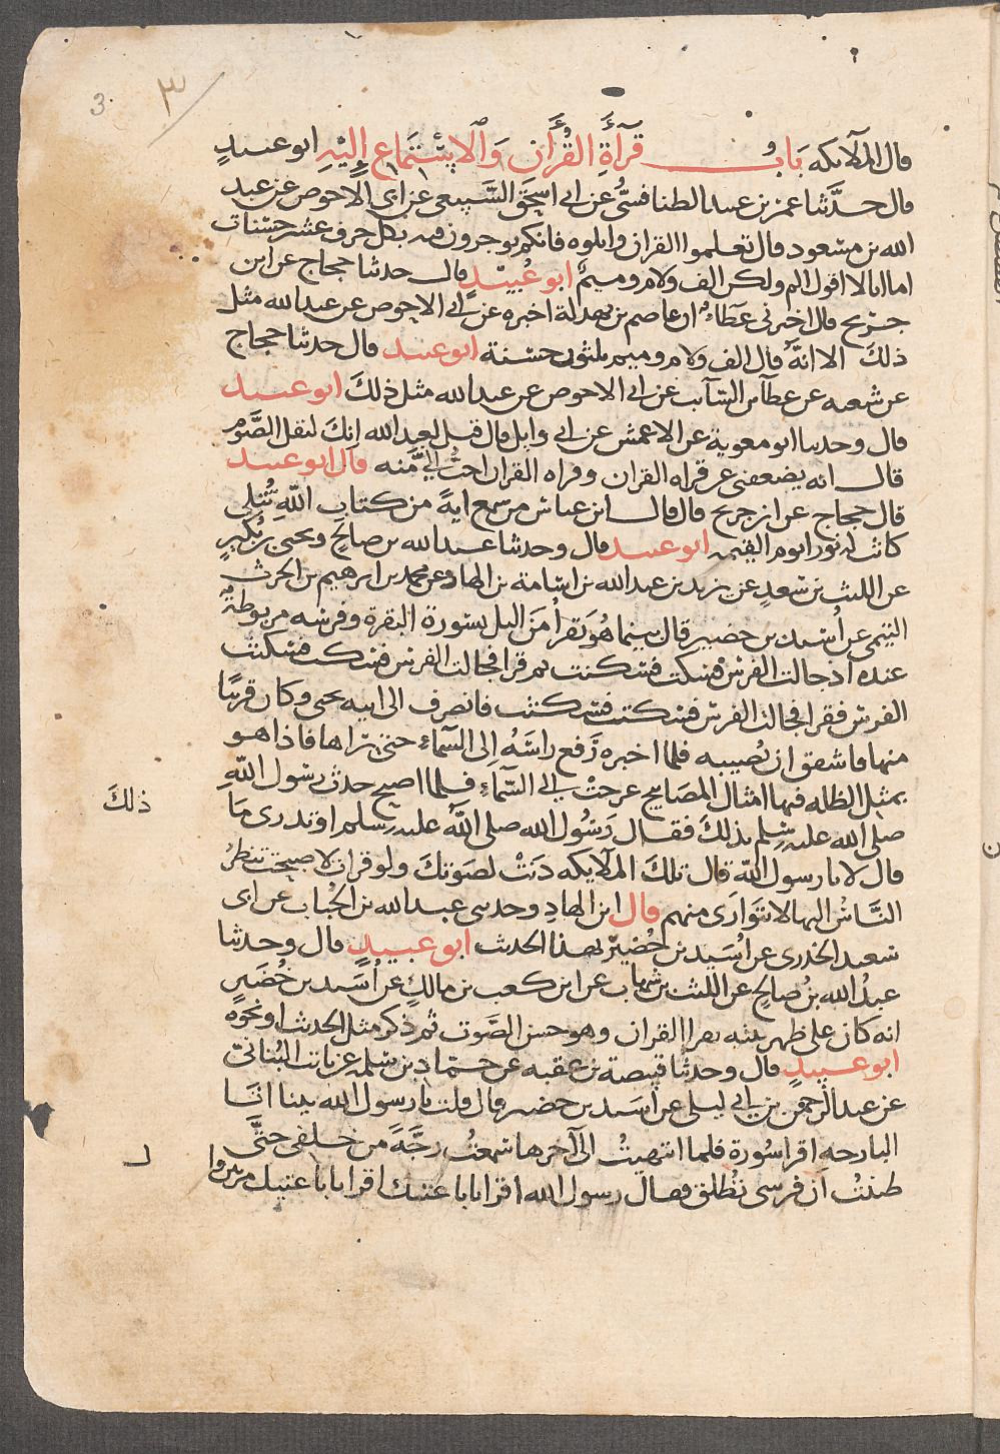 3 ٣
قال الملائكة باب قرآءة القرءان والاستماع إليه ابو عبيد
قال حدثنا عمر بن عبيد الطنافسى عن ابى اسحق السبيعى عن ابى الاحوص عن عبد
الله بن مسعود قال تعلموا القران واتلوه فانكم توجرون فيه بكل حرف عشر حسنات
اما انا لا اقول الم ولكن الف ولام وميم ابو عبيد قال حدثنا حجاج عن ابن
جريج قال اخبرنى عطاء ان عاصم بن بهدلة اخبره عن ابى الاحوص عن عبد الله مثل
ذلك الا انه قال الف ولام وميم ثلثون حسنة ابو عبيد قال حدثنا حجاج
عن شعبه عن عطآ بن السآئب عن ابى الاحوص عن عبد الله مثل ذلك ابو عبيد
قال وحدثنا ابو معوية عن الاعمش عن ابى وايل قال قيل لعبد الله انك لتقل الصوم
قال انه يضعفنى عن قراه القران وقراه القران احب الى منه قال ابو عبيد
قال حجاج عن ابن جريج قال قال ابن عباس من سمع اية من كتاب الله تتلى
كانت له نورا يوم القيمه ابو عبيد قال وحدثنا عبد الله بن صالح ويحيى بن بكير
عن الليث بن سعد عن يزيد بن عبد الله بن اسامة بن الهاد عن محمد بن ابرهيم بن الحرث
التيمى عن اسيد بن حضير قال بينما هو يقرأ من اليل بسورة البقرة وفرسه مربوطة
عنده اذ جالت الفرس فسكت فسكنت ثم قرا فجالت الفرس فسكت فسكنت
الفرس فقرا فجالت الفرس فسكت فسكنت فانصرف الى ابنه يحيى وكان قريبا
منها فاشفق ان تصيبه فلما اخبره رفع راسه إلى السماء حتى يراها فاذا هو
بمثل الظله فيها امثال المصابيح عرجت الى السمآء فلما اصبح حدث رسول الله
صلى الله عليه وسلم بذلك فقال رسول الله صلى الله عليه وسلم اوتدرى ما
ذلك
قال لا يا رسول الله قال تلك الملايكه دنت لصوتك ولو قرات لاصبحت تنظر
الناس اليها لا تتوارى منهم قال ابن الهاد وحدثنى عبد الله بن الخباب عن ابى
سعيد الخدرى عن اسيد بن حضير بهذا الحديث ابو عبيد قال وحدثنا
عبد الله بن صالح عن الليث بن شهاب عن ابن كعب بن مالك عن أسيد بن خضير
انه كان على ظهر بيته يقرا القران وهو حسن الصوت ثم ذكر مثل الحديث او نحوه
ابو عبيد قال وحدثنا قبيصة بن عقبه عن حماد بن سلمه عن ثابت البنانى
عن عبد الرحمن بن ابى ليلى عن أسيد بن حضير قال قلت يا رسول الله بينا انا
البارحه اقرا سورة فلما انتهيت الى آخرها سمعت رجة من خلفى حتى
ظننت ان فرسى تطلق فقال رسول الله اقرا يابا عتيك اقرا يابا عتيك مرتين